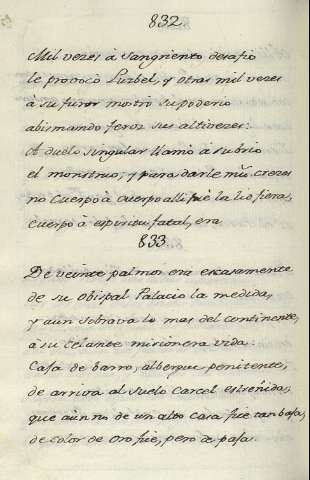 832.
Mil vezes à sangriento desafio
le provocò Luzbel, y otras mil vezes
à su furor mostrò su poderio
abismando feroz sus altivezes:
A duelo singular llamò à su brio
el monstruo, y para darle mas crezes
no Cuerpo à cuerpo alli fuè la lid fiera,
cuerpo à espiritu fatal, era
833.
De veinte palmos era escasamente
de su Obispal Palacio la medida,
y aun sobrava lo mas del continente,
à su celante misionera vida.
Casa de barro, albergue penitente,
de arriva al suelo Carcel estreñida,
que aùn no de un alto Casa fuè tan baja,
de color de oro fuè, pero de paja.